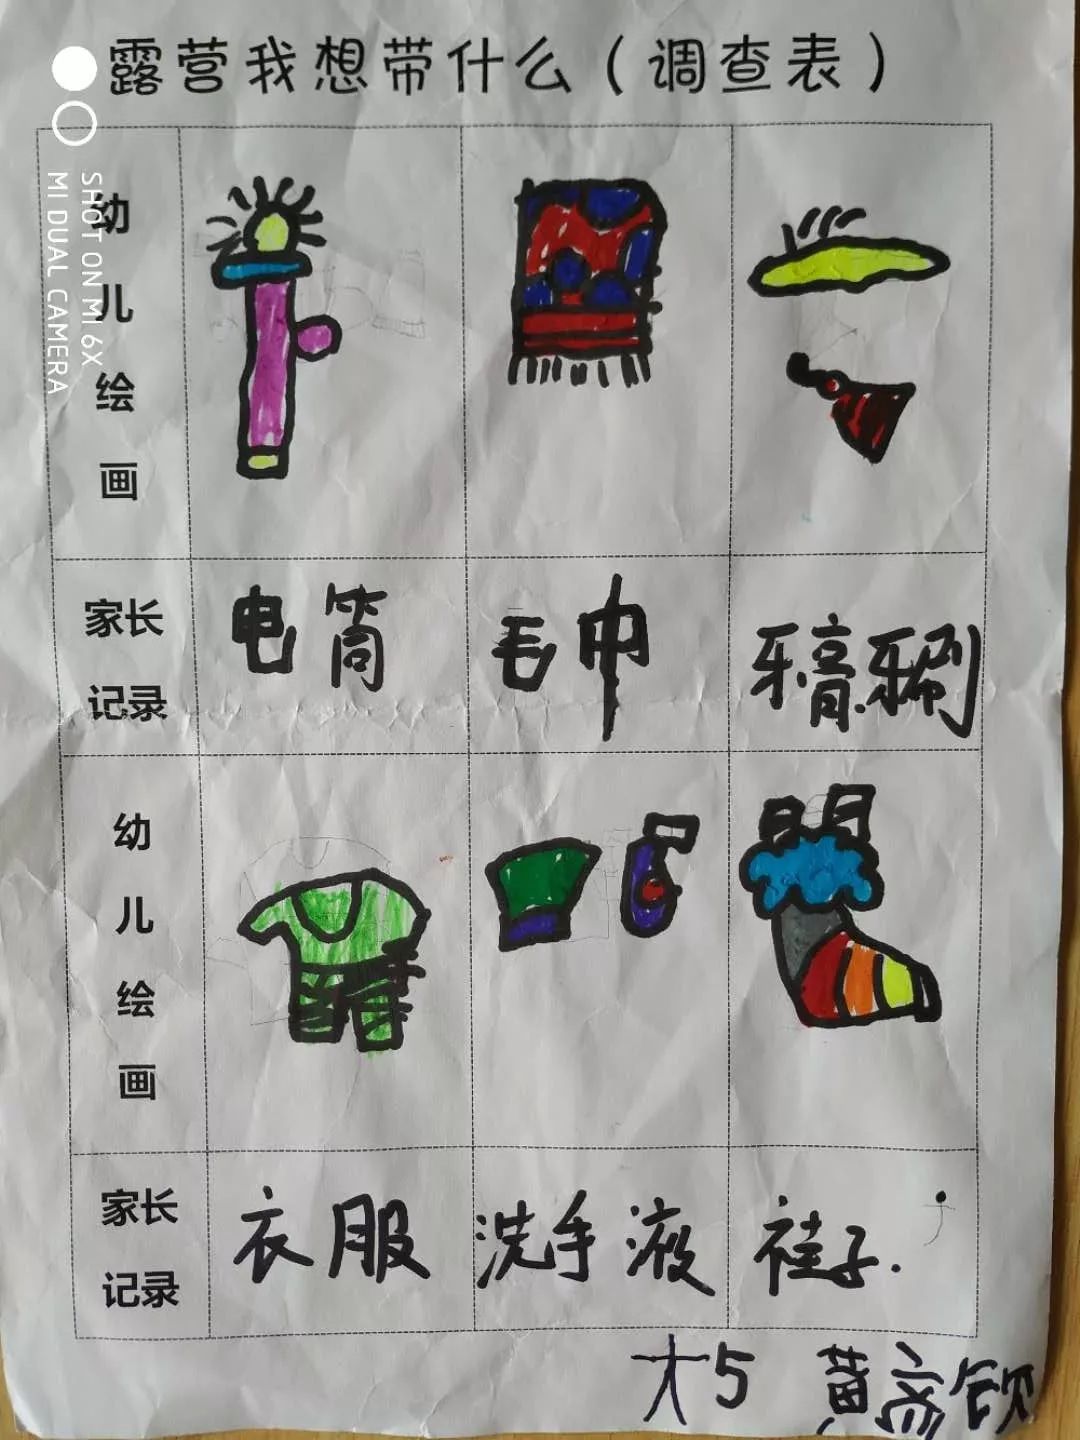 露营我想带什么（调查表）
SHOT ON MI 6X
MI DUAL CAMERA
幼儿绘画
家长记录
电筒
毛巾
牙膏.牙刷
幼儿绘画
家长记录
衣服
洗手液
袜子.
大5 黄